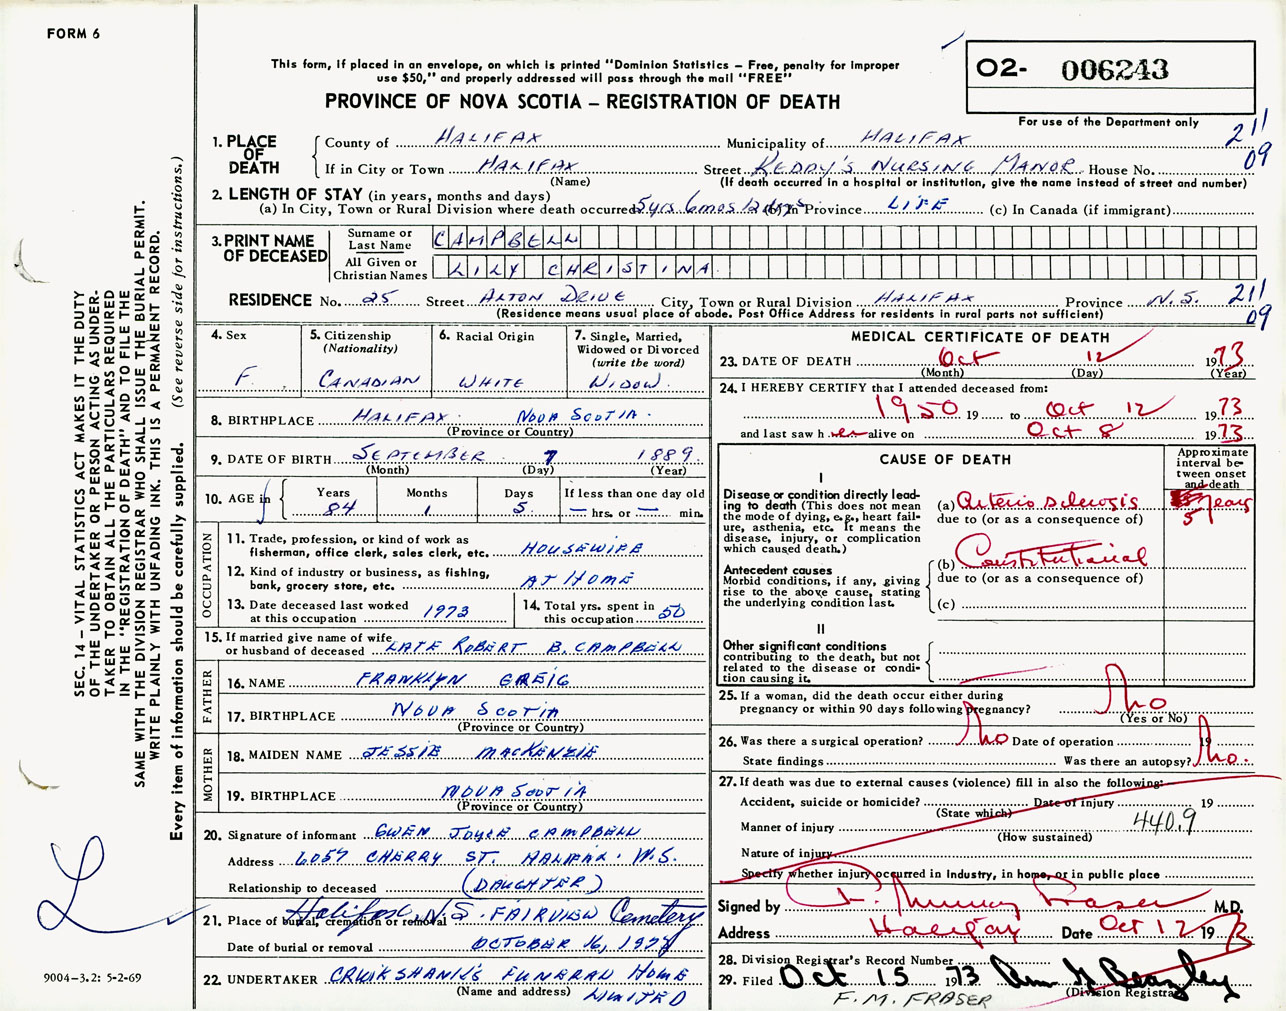 FORM 6
This form, if placed in an envelope, on which is printed "Dominion Statistics – Free, penalty for improper
use $50," and properly addressed will pass through the mail "FREE"
O2- 006243
PROVINCE OF NOVA SCOTIA – REGISTRATION OF DEATH
For use of the Department only
1. PLACE OF DEATH
County of HALIFAX Municipality of HALIFAX 211
If in City or Town HALIFAX Street KEDDY'S NURSING MANOR House No. 09
(Name) (If death occurred in a hospital or institution, give the name instead of street and number)
2. LENGTH OF STAY (in years, months and days)
(a) In City, Town or Rural Division where death occurred 5yrs 6mos (b) In Province LIFE (c) In Canada (if immigrant)
3. PRINT NAME OF DECEASED
Surname or Last Name CAMPBELL
All Given or Christian Names LILY CHRISTINA
RESIDENCE No. 25 Street ALTON DRIVE City, Town or Rural Division HALIFAX Province N.S. 211
(Residence means usual place of abode. Post Office Address for residents in rural parts not sufficient) 09
4. Sex F.
5. Citizenship (Nationality) CANADIAN
6. Racial Origin WHITE
7. Single, Married, Widowed or Divorced (write the word) WIDOW.
8. BIRTHPLACE HALIFAX. NOVA SCOTIA.
(Province or Country)
9. DATE OF BIRTH SEPTEMBER 7 1889.
(Month) (Day) (Year)
10. AGE in Years 84 Months 1 Days 5. If less than one day old — hrs. or — min.
OCCUPATION
11. Trade, profession, or kind of work as
fisherman, office clerk, sales clerk, etc. HOUSEWIFE
12. Kind of industry or business, as fishing,
bank, grocery store, etc. AT HOME
13. Date deceased last worked at this occupation 1973
14. Total yrs. spent in this occupation 50
15. If married give name of wife
or husband of deceased LATE ROBERT B. CAMPBELL
FATHER
16. NAME FRANKLYN GREIG
17. BIRTHPLACE NOVA SCOTIA
(Province or Country)
MOTHER
18. MAIDEN NAME JESSIE MACKENZIE
19. BIRTHPLACE NOVA SCOTIA
(Province or Country)
20. Signature of informant GWEN JOYCE CAMPBELL
Address 6057 CHERRY ST. HALIFAX. N.S.
Relationship to deceased (DAUGHTER)
21. Place of burial, cremation or removal Halifax, N.S. FAIRVIEW Cemetery
Date of burial or removal OCTOBER 16, 1973
22. UNDERTAKER CRUIKSHANK'S FUNERAL HOME
(Name and address) LIMITED
MEDICAL CERTIFICATE OF DEATH
23. DATE OF DEATH Oct 12 1973
(Month) (Day) (Year)
24. I HEREBY CERTIFY that I attended deceased from:
1950 19 to Oct 12 1973
and last saw her alive on Oct 8 1973
CAUSE OF DEATH
Approximate interval between onset and death
I
Disease or condition directly lead-
ing to death (This does not mean
the mode of dying, e.g., heart fail-
ure, asthenia, etc. It means the
disease, injury, or complication
which caused death.)
(a) Arterio sclerosis 5 years
due to (or as a consequence of)
Antecedent causes
Morbid conditions, if any, giving
rise to the above cause, stating
the underlying condition last.
(b) Constitutional
due to (or as a consequence of)
(c)
II
Other significant conditions
contributing to the death, but not
related to the disease or condi-
tion causing it.
25. If a woman, did the death occur either during
pregnancy or within 90 days following pregnancy? No
(Yes or No)
26. Was there a surgical operation? No Date of operation 19
State findings Was there an autopsy? No.
27. If death was due to external causes (violence) fill in also the following:
Accident, suicide or homicide? Date of injury 19
(State which)
Manner of injury 440.9
(How sustained)
Nature of injury
Specify whether injury occurred in Industry, in home, or in public place
Signed by F. Murray Fraser M.D.
Address Halifax Date Oct 12 1973
28. Division Registrar's Record Number
29. Filed Oct 15 1973
(Division Registrar)
F. M. FRASER
SEC. 14 – VITAL STATISTICS ACT MAKES IT THE DUTY
OF THE UNDERTAKER OR PERSON ACTING AS UNDER-
TAKER TO OBTAIN ALL THE PARTICULARS REQUIRED
IN THE "REGISTRATION OF DEATH" AND TO FILE THE
SAME WITH THE DIVISION REGISTRAR WHO SHALL ISSUE THE BURIAL PERMIT.
WRITE PLAINLY WITH UNFADING INK. THIS IS A PERMANENT RECORD.
Every item of information should be carefully supplied. (See reverse side for instructions.)
9004–3.2: 5-2-69